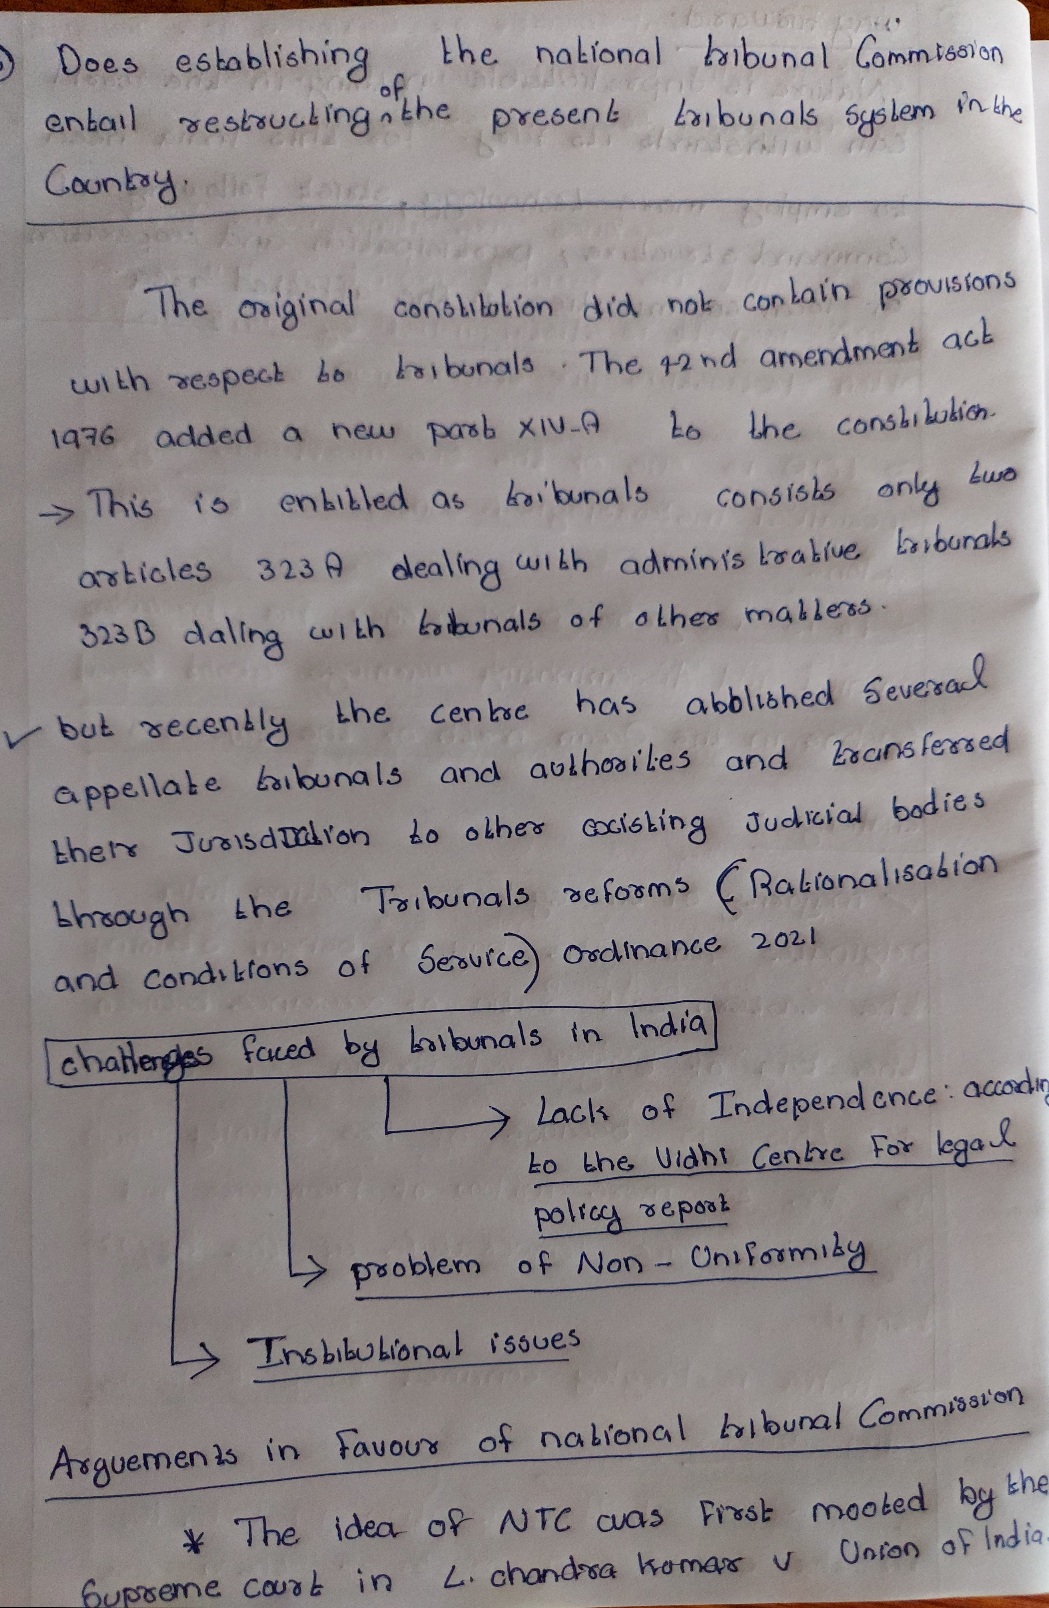 Does establishing the national tribunal Commission
entail restructing of the present tribunals system in the
Country.
The original constitution did not contain provisions
with respect to tribunals. The 42nd amendment act
1976 added a new part XIV-A to the constitution.
→ This is entitled as tribunals consists only two
articles 323A dealing with administrative tribunals
323B daling with tribunals of other matters.
✓ but recently the centre has abolished several
appellate tribunals and authorities and transferred
their Jurisdiction to other existing Judicial bodies
through the Tribunals reforms (Rationalisation
and conditions of Service) Ordinance 2021
challenges faced by tribunals in India
→ Lack of Independence: according
to the Vidhi Centre For legal
policy report
→ problem of Non - Uniformity
→ Institutional issues
Arguements in Favour of national tribunal Commission
* The idea of NTC was First mooted by the
Supreme court in L. chandra kumar v Union of India.